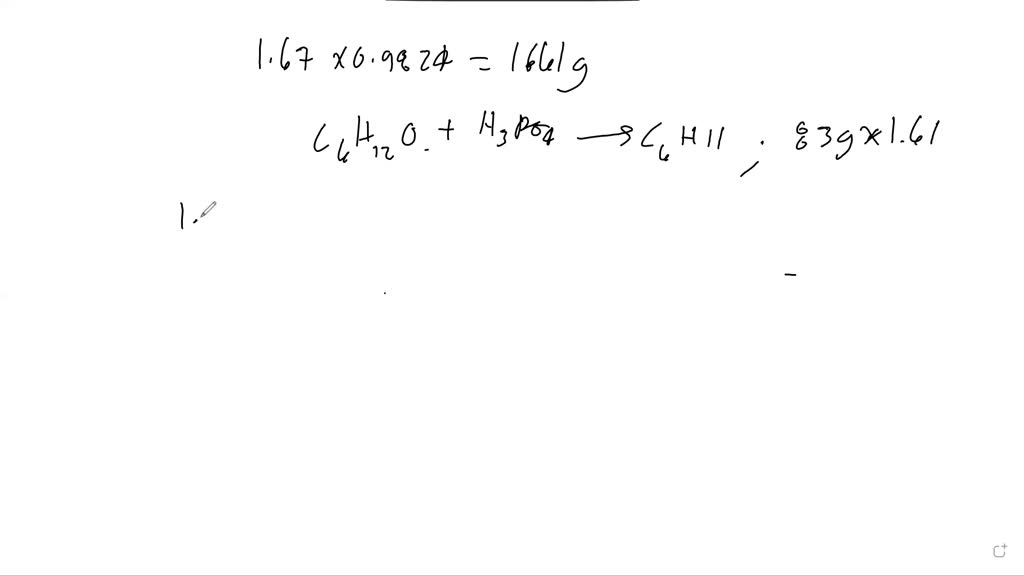 1.67 x 0.9824 = 1661g
C6H12O. + H3PO4 → C6H11 , . 83g x 1.61
1.
-